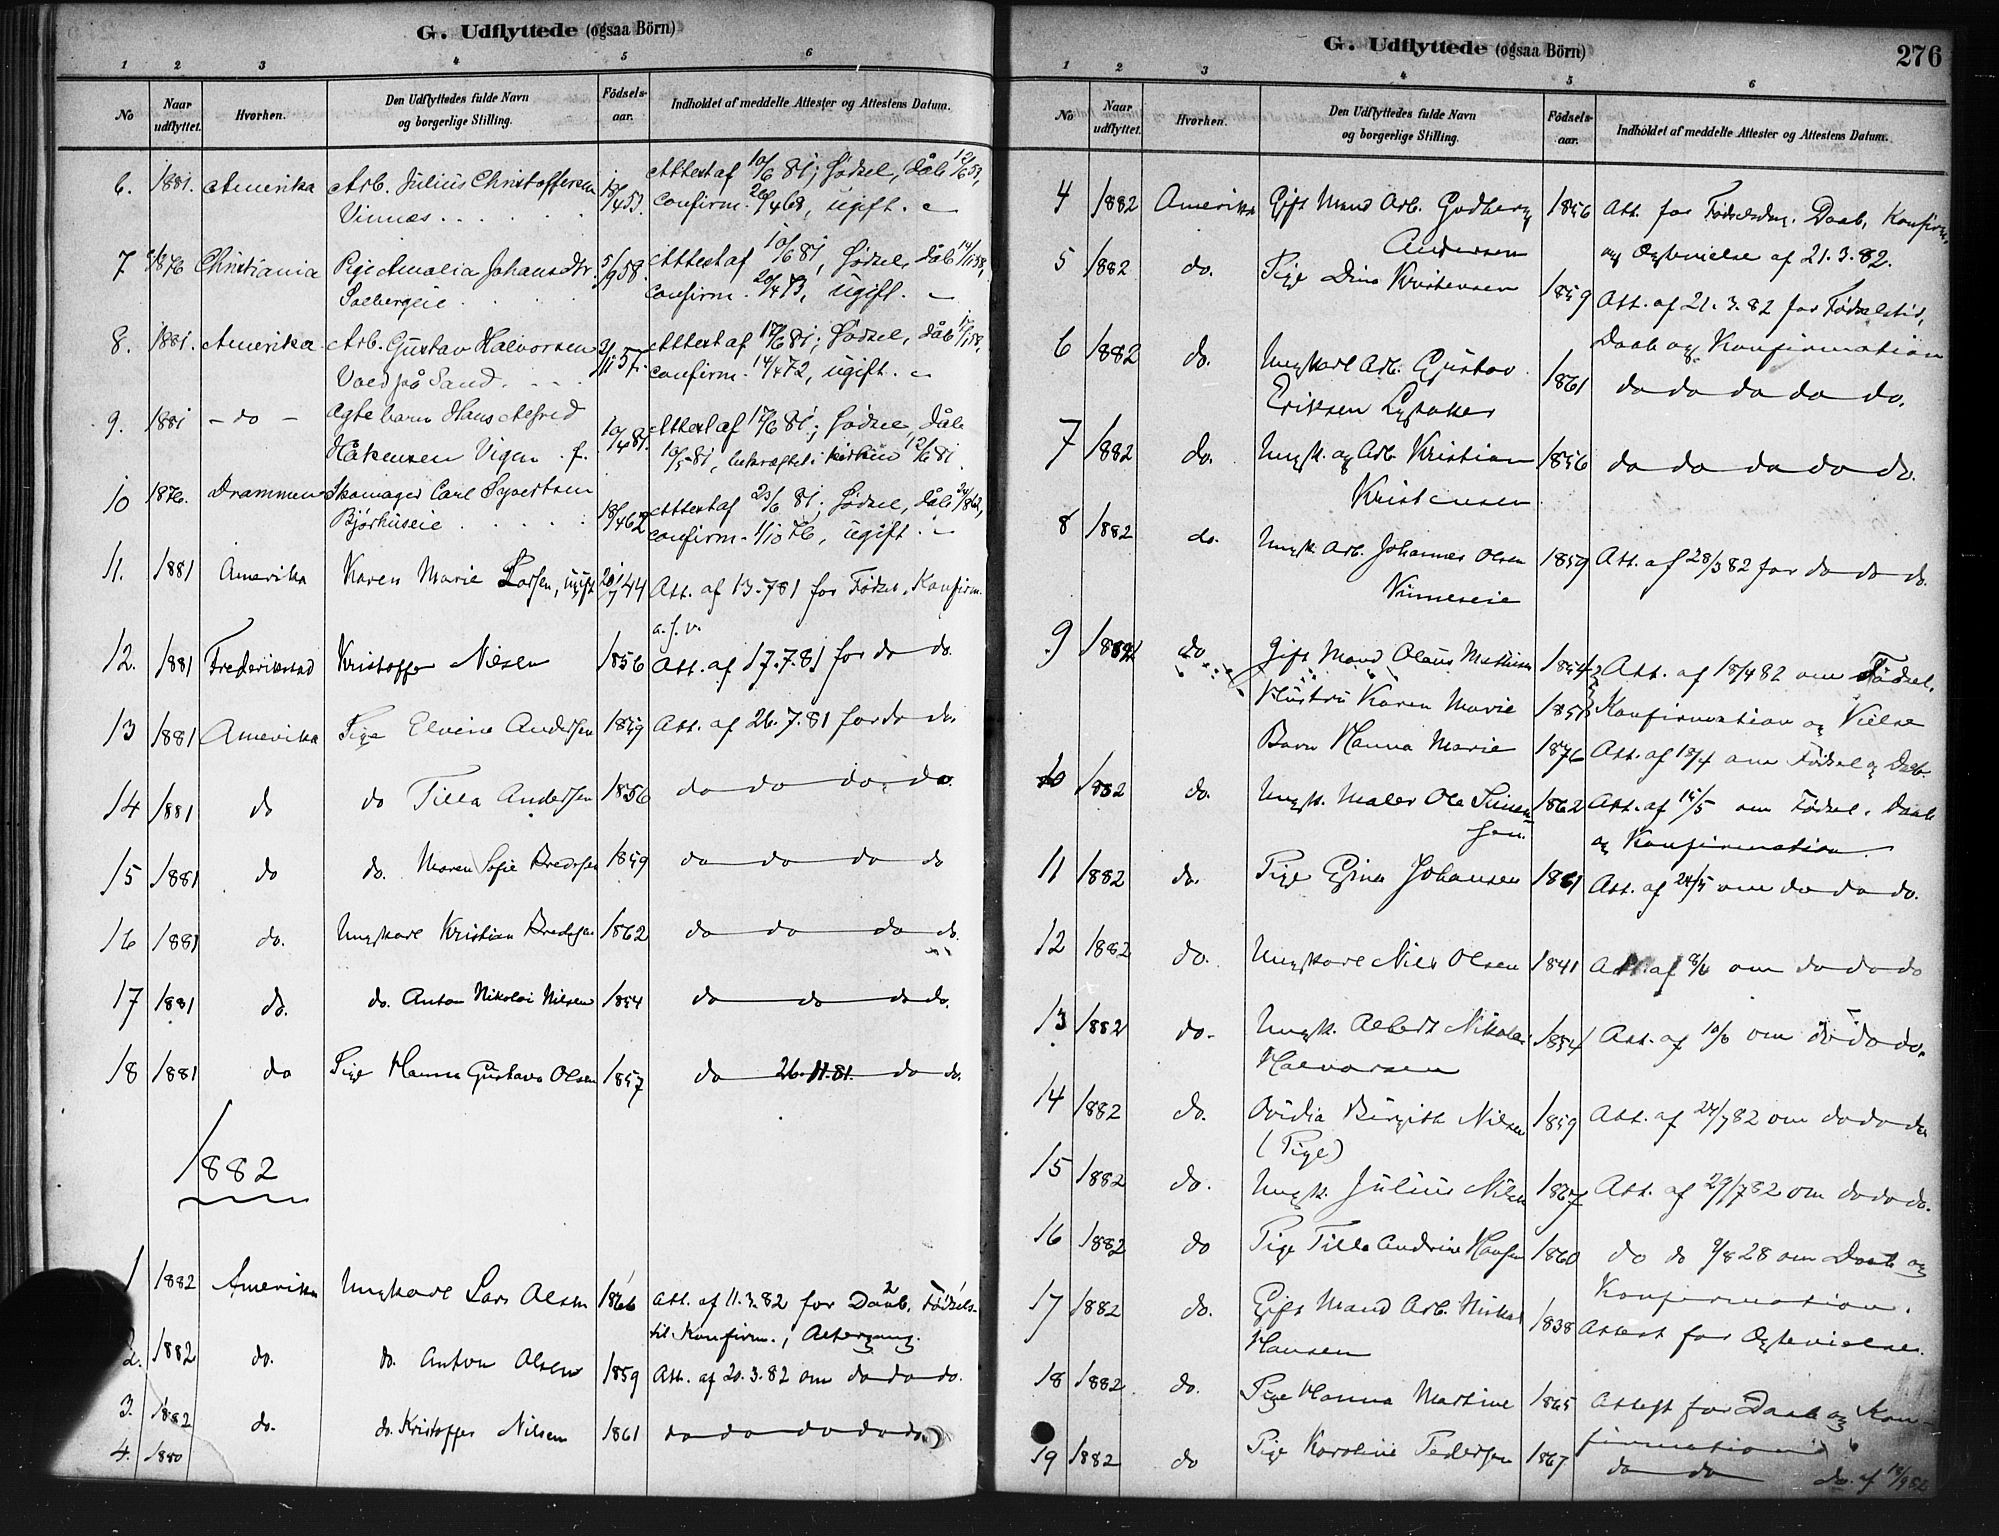 G. Udflyttede (ogsaa Börn)
1 2 3 4 5 6
No Naar udflyttet. Hvorhen. Den Udflyttedes fulde Navn og borgerlige Stilling. Födsels-aar. Indholdet af meddelte Attester og Attestens Datum.
6. 1881. Amerika Arb. Julius Christoffersen Attest af 10/6 81; födsel, dåb
Vinnæs confirm. 26/4 68, ugift.
7 1876 Christiania Pige Amalia Johansdtr. 5/9 58. Attest af 10/6 81, födsel, dåb
Solbergeie confirm. 20/4 73, ugift.
8. 1881. Amerika Arb. Gustav Halvorsen Attest af 17/6 81; födsel, dåb
Vold på Sand. confirm. 14/4 72, ugift.
9. 1881 - do - Ægte barn Hans Alfred 10/4 81. Attest af 17/6 81; födsel, dåb
Håkensen Vigen 10/5 81, bekræftet i kirken 12/6 81.
10 1876. Drammen Skomager Carl Syvertsen 18/4 62 Attest af 23/6 81; födsel, dåb
Bjørhuseie confirm. 1/10 76, ugift.
11. 1881 Amerika Karen Marie Larsen, ugift 44 Att. af 13.7 81 for Födsel, Konfirm.
a. s. v.
12. 1881 Frederikstad Kristoffer Nilsen 1856 Att. af 17.7.81 for do do
13 1881 Amerika Pige Elvine Andersen 1859 Att. af 26.7.81 for do do
14 1881 do do Tilla Andersen 1856 do do do do
15 1881 do do. Maren Sofie Bredesen 1859 do do do do
16 1881 do. Ungkarl Kristian Bredesen 1862 do do do do.
17 1881 do. do. Anton Nikolai Nilsen 1854 do do do do.
18 1881 do Pige Hanna Gustava Olsen 1857 do 26.11.81. do do.
1882
1 1882 Amerika Ungkarl Lars Olsen 1866 Att. af 11.3.82 for Daab, Födsels-
til Konfirm., Altergang.
2. 1882 do. do. Anton Olsen 1859 Att. af 20.3.82 om do do do.
3. 1882 do. do. Kristoffer Nilsen 1861 do do do do do
4. 1880
G. Udflyttede (ogsaa Börn) 276
1 2 3 4 5 6
No Naar udflyttet. Hvorhen. Den Udflyttedes fulde Navn og borgerlige Stilling. Födsels-aar. Indholdet af meddelte Attester og Attestens Datum.
4 1882 Amerika Gift Mand Arb. Gudberg 1856 Att. for Födselsdag. Daab, Konfirm.
Andersen og Ægtevielse af 21.3.82.
5 1882 do. Pige Dina Kristensen 1859 Att. af 21.3.82 for Födselstid,
Daab og Konfirmation
6 1882 do. Ungkarl Arb. Gustav 1861 do do do do do.
Eriksen Lysaker
7 1882 do. Ungk. og Arb. Kristian 1856 do do do do do.
Kristensen
8 1882 do. Ungk. Arb. Johannes Olsen 1859 Att. af 28/3 82 for do do do.
Vinneseie
9 1882 do Gift Mand Olaus Mathisen 1854 Att. af 18/4 82 om Födsel,
Hustru Karen Marie Konfirmation og Vielse
Barn Hanna Marie 1876 Att. af 18/4 om Födsel og Daab
10 1882 do. Ungk. Maler Ole Simen- 1862 Att. af 15/5 om Födsel, Daab
sen. og Konfirmation.
11 1882 do. Pige Gina Johansen 1861 Att. af 24/5 om do do do.
12 1882 do. Ungkarl Nils Olsen 1841 Att. af 8/6 om do do do
13 1882 do. Ungk. Albert Nikolai 1854 Att. af 10/6 om do do do.
Halvorsen
14 1882 do. Ovidia Birgitte Nilsen 1859 Att. af 24/7 82 om do do do
(Pige)
15 1882 do. Ungk. Julius Nilsen Att. af 29/7 82 om do do do.
16 1882 do Pige Tilla Andrine Hansen 1860 do do 9/8 28 om Daab og
Konfirmation.
17 1882 do. Gift Mand Arb. 1838 Attest for Ægtevielse.
Hansen
18 1882 do. Pige Hanna Martine 1865 Attest for Daab og Kon-
firmation
19 1882 do Pige Karoline Pedersen 1867 do do do. af